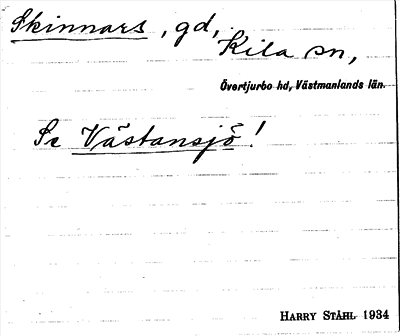 Skinnars, gd,
Kila sn,
Övertjurbo hd, Västmanlands län.
Se Västansjö!
HARRY STÅHL 1934